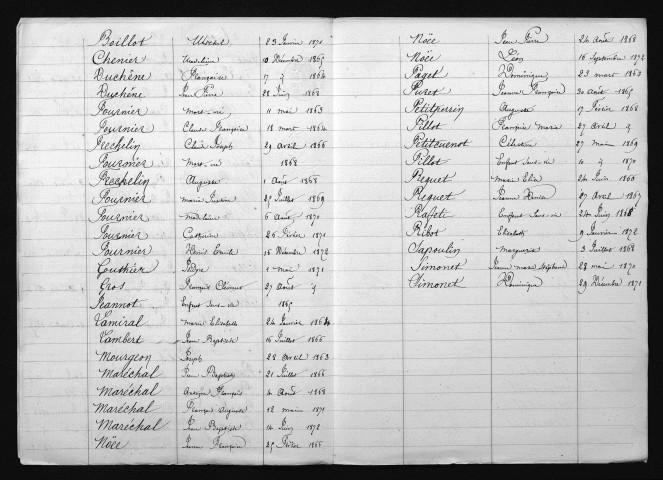 Boillot Michel 23 Janvier 1871
Chenier Madeleine 10 Décembre 1865
Duchêne Françoise 17 1864
Duchêne Jean Pierre 28 Juin 1868
Fournier Mort-né 11 mai 1863
Fournier Claude François 18 mars 1864
Frechelin Claude Joseph 29 avril 1866
Fournier Mort-né 1868
Frechelin Auguste 1 Août 1868
Fournier Marie Justine 25 Juillet 1869
Fournier Madeleine 6 Août 1870
Fournier Catherine 26 Février 1871
Fournier Henri Emile 16 Décembre 1872
Gauthier 1 mai 1871
Gros François 27 Août
Jeannot Enfant Sans-vie 1865
Lamiral Marie Elisabeth 24 Janvier 1864
Lambert Jean Baptiste 16 Juillet 1866
Mourgeon Joseph 28 Avril 1863
Maréchal Jean Baptiste 21 Juillet 1866
Maréchal Antoine François 4 Août 1868
Maréchal François Auguste 12 1871
Maréchal Jean Baptiste 14 Juin 1872
Nöce Jeanne Françoise 25 Février 1866
Nöce Jean Pierre 24 Août 1868
Nöce Léon 16 Septembre 1872
Paget Dominique 23 mars 1863
Puret Jeanne Françoise 30 Août 1865
Petitperrin Auguste 17 Février 1868
Pillot François Marie 27 Avril
Petitcuenot Célestin 27 1869
Pillot Enfant Sans-vie 1870
Riquet Marie Elise 24 Juin 1866
Riquet Jeanne 27 Avril 1867
Raffeti Enfant Sans-vie 24 Juin 1868
Ribot Elisabeth 9 Janvier 1872
Sapoulin Marguerite 3 Juillet 1868
Simonet Jeanne Marie Stéphanie 28 mai 1870
Simonet Dominique 29 Décembre 1871